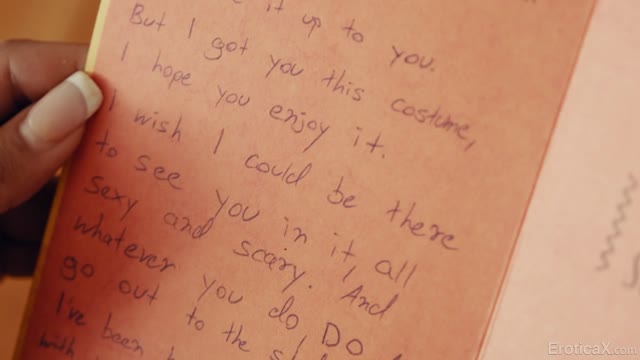 it up to you.
But I got you this costume,
I hope you enjoy it.
I wish I could be there
to see you in it, all
sexy and scary. And
whatever you do DO
go out to the
I've been
with
EroticaX.com